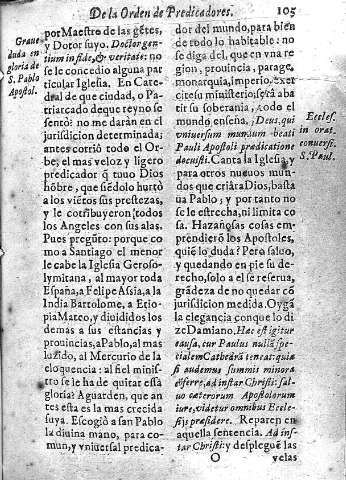 De la Orden de Predicadores. 105
Graue
duda en
gloria de
S. Pablo
Apostol.
por Maestro de las gẽtes,
y Dotor suyo. Doctor gen-
tium in fide, & veritate: no
se le concedio alguna par
ticular Iglesia. En Cate-
dral de que ciudad, o Pa-
triarcado de que reyno se
sentò? no me darán en el
jurisdicion determinada;
antes corriò todo el Or-
be; el mas veloz y ligero
predicador q̃ tuuo Dios
hõbre, que siẽdolo hurtò
a los viẽtos sus prestezas,
y le cõtribuyerõ todos
los Angeles con sus alas.
Pues pregũto: porque co
mo a Santiago el menor
le cabe la Iglesia Geroso-
lymitana, al mayor toda
España, a Felipe Assia, a la
India Bartolome, a Etio-
pia Mateo, y diuididos los
demas a sus estancias y
prouincias, a Pablo, al mas
luzido, al Mercurio de la
eloquencia: al fiel minis-
tro se le ha de quitar essa
gloria? Aguarden, que an
tes esta es la mas crecida
suya. Escogiò a san Pablo
la diuina mano, para co-
mun, y vniuersal predica-
dor del mundo, para bien
de todo lo habitable: no
se diga del, que en vna re
gion, prouincia, parage,
monarquia, imperio, exer
cito su ministerio; serà aba
tir su soberania, todo el
mundo enseña, Deus, qui
vniuersum mundum beati
Pauli Apostoli prædicatione
docuisti. Canta la Iglesia, y
para otros nueuos mun-
dos que criàra Dios, basta
ua Pablo; y por tanto no
se le estrecha, ni limita co
sa. Hazañosas cosas em-
prendierõ los Apostoles,
quiẽ lo duda? Pero saluo,
y quedando en pie su de-
recho, solo a el se reserua,
grãdeza de no quedar cõ
jurisdicion medida. Oygã
la elegancia con que lo di
ze Damiano. Hac est igitur
causa, cur Paulus nullã spe-
cialem Cathedrã teneat: quia
si audemus summis minora
cõferre, ad instar Christi: sal
uo cæterorum Apostolorum
iure, videtur omnibus Eccle-
sijs præsidere. Reparen en
aquella sentencia. Ad ins-
tar Christi: y despleguẽ las
Eccles.
in orat.
conuers.
S. Paul.
O velas